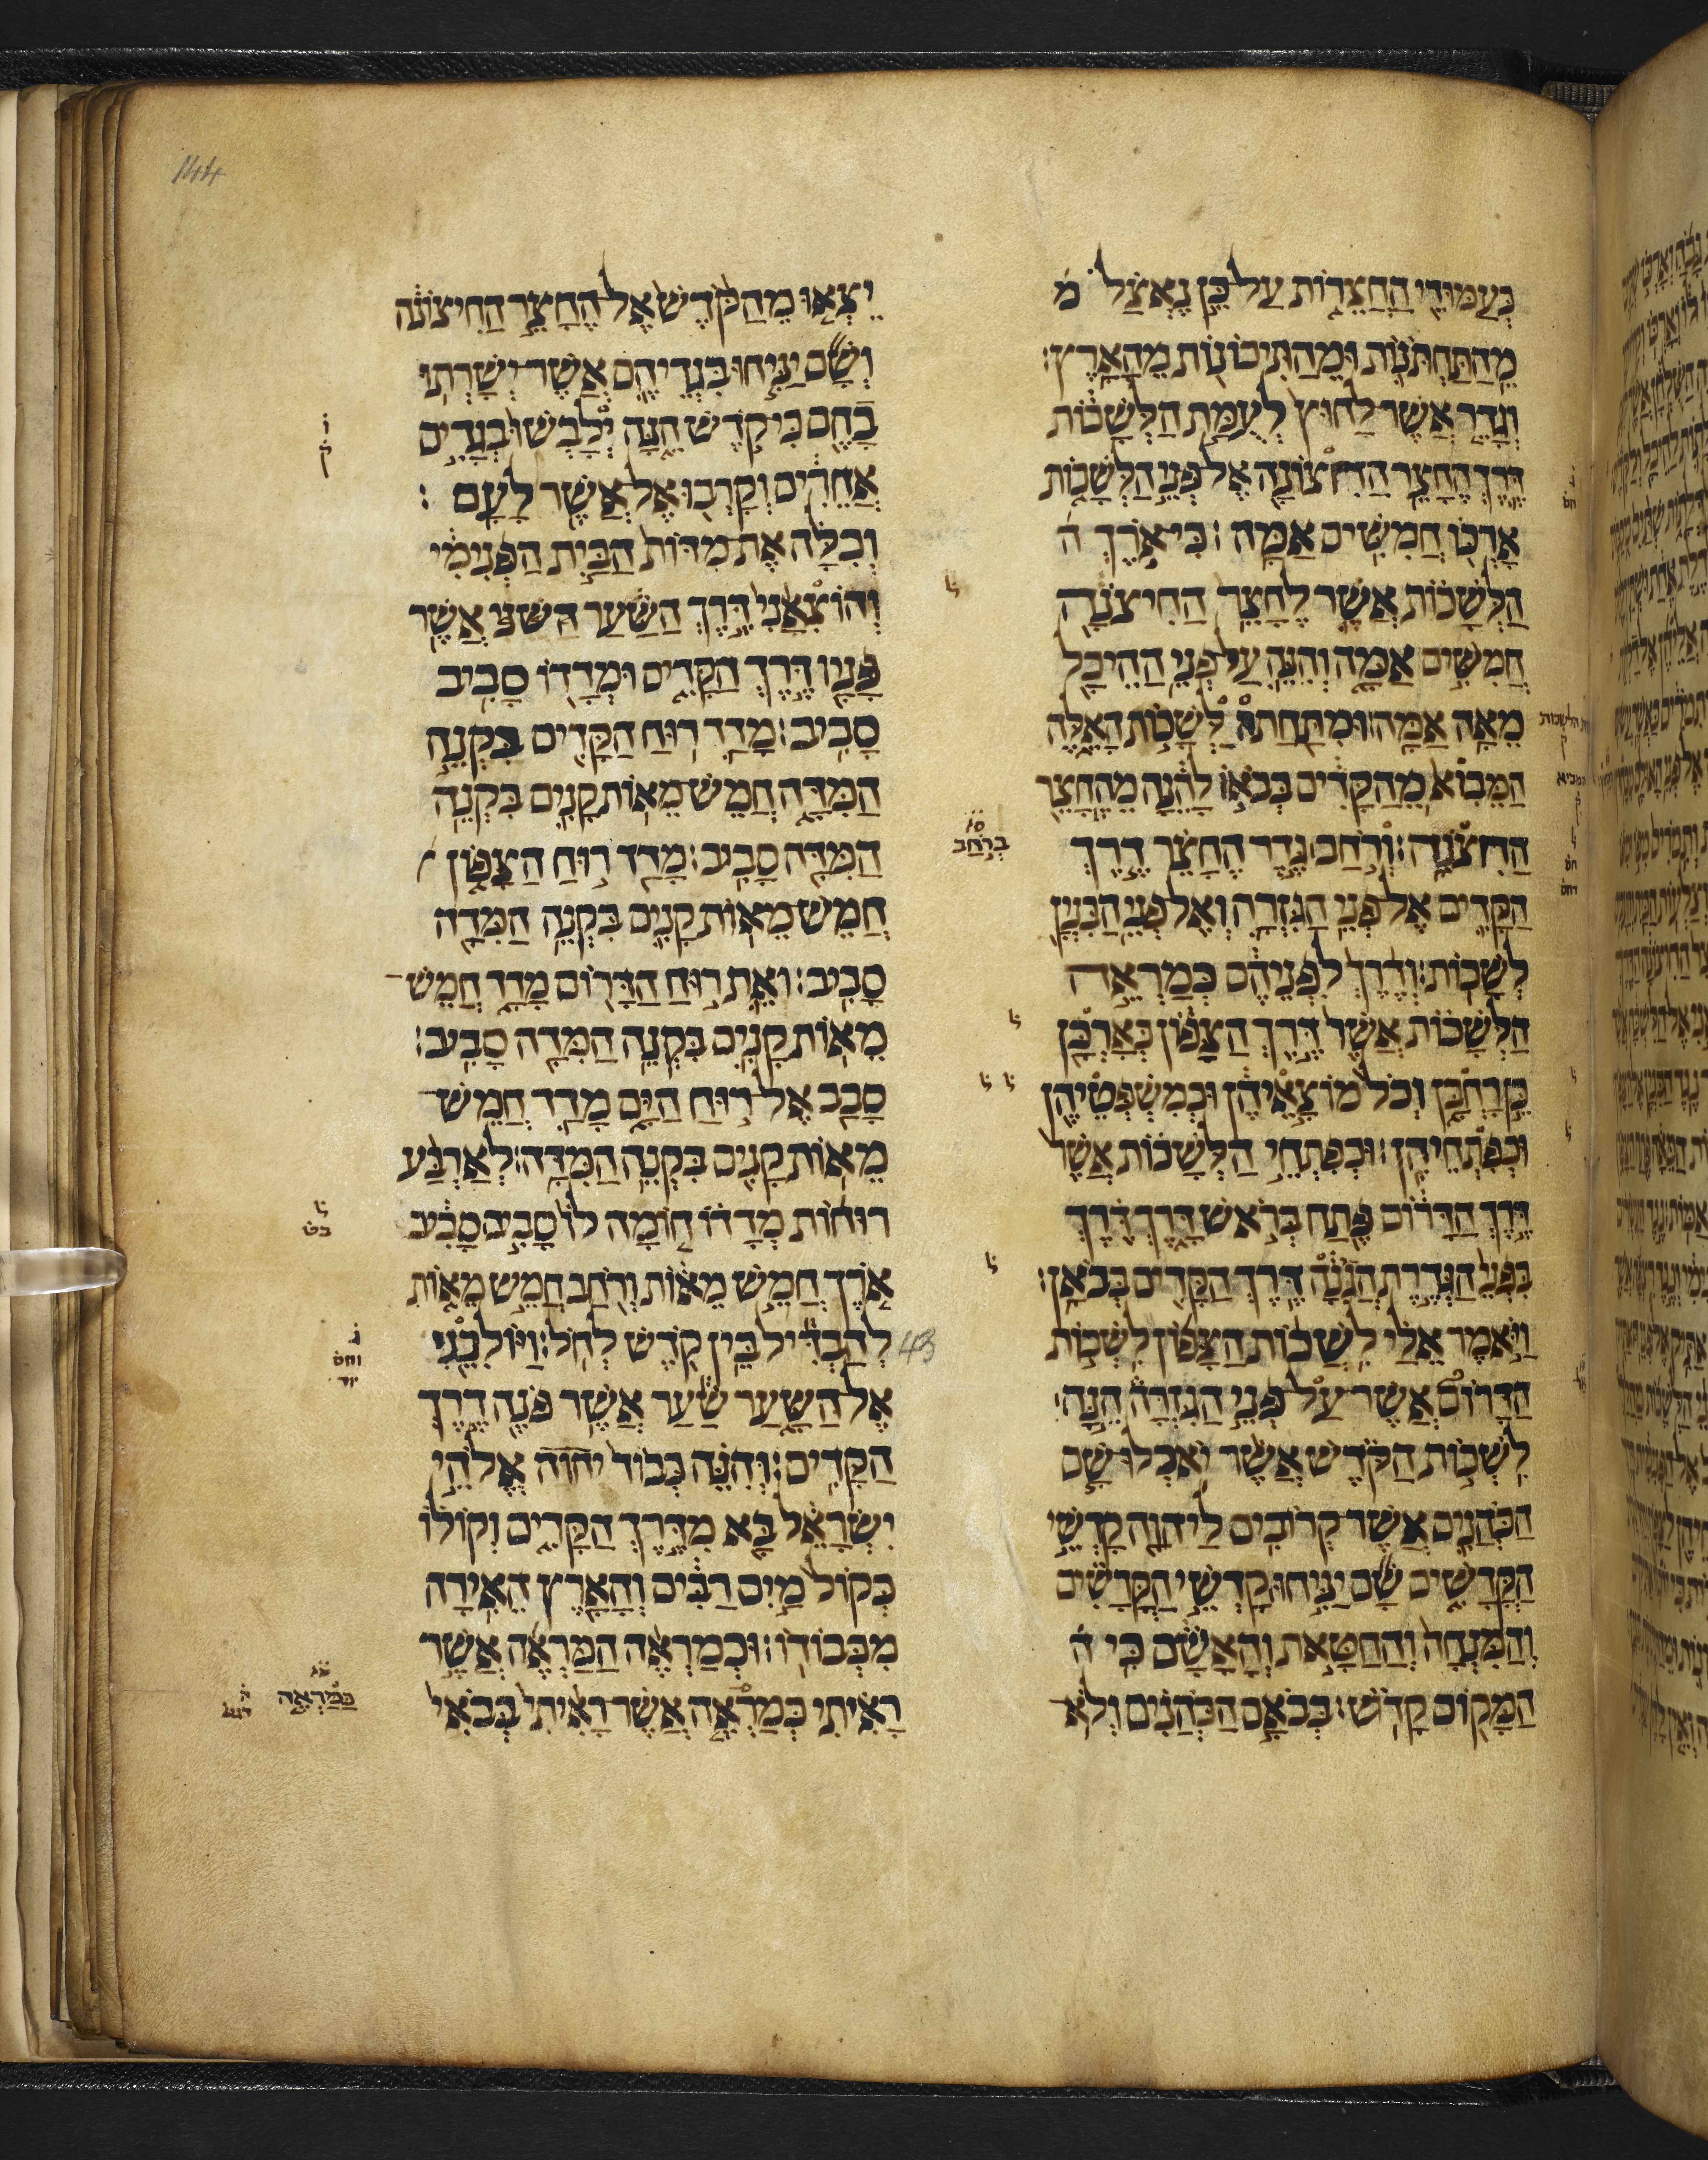 144
כעמודי החצרות על כן נאצל מ
מהתחתנות ומהתיכונות מהארץ׃
וגדר אשר לחוץ לעמת הלשכות
דרך החצר החצונה אל פני הלשכות
ארכו חמשים אמה׃ כי ארך ה
הלשכות אשר לחצר החיצנה
חמשים אמה והנה על פני ההיכל
מאה אמה׃ ומתחתה לשכות האלה
המבוא מהקדים בבאו להנה מהחצר
החצנה׃ ורחב גדר החצר דרך
הקדים אל פני הגזרה ואל פני הבנין
לשכות׃ ודרך לפניהם כמראה
הלשכות אשר דרך הצפון כארכן
כן רחבן וכל מוצאיהן וכמשפטיהן
וכפתחיהן׃ וכפתחי הלשכות אשר
דרך הדרום פתח בראש דרך דרך
בפני הגדרת הגינה דרך הקדים בבואן׃
ויאמר אלי לשכות הצפון לשכות
הדרום אשר על פני הגזרה הנה
לשכות הקדש אשר יאכלו שם
הכהנים אשר קרובים ליהוה קדשי
הקדשים שם יניחו קדשי הקדשים
והמנחה והחטאת והאשם כי ה
המקום קדש׃ בבאם הכהנים ולא
יצאו מהקדש אל החצר החיצונה
ושם יניחו בגדיהם אשר ישרתו
בהם כי קדש הנה ילבשו בגדים
אחרים וקרבו אל אשר לעם׃
וכלה את מדות הבית הפנימי
והוצאני דרך השער אשר
פניו דרך הקדים ומדדו סביב
סביב׃ מדד רוח הקדים בקנה
המדה חמש מאות קנים בקנה
המדה סביב׃ מדד רוח הצפון
חמש מאות קנים בקנה המדה
סביב׃ ואת רוח הדרום מדד חמש
מאות קנים בקנה המדה סביב׃
סבב אל רוח הים מדד חמש
מאות קנים בקנה המדה׃ לארבע
רוחות מדדו חומה לו סביב סביב
ארך חמש מאות ורחב חמש מאות
להבדיל בין קדש לחל׃ ויולכני
אל השער שער אשר פנה דרך
הקדים׃ והנה כבוד יהוה אלהי
ישראל בא מדרך הקדים וקולו
כקול מים רבים והארץ האירה
מכבודו׃ וכמראה המראה אשר
ראיתי כמראה אשר ראיתי בבאי
43
ברחב
במראה